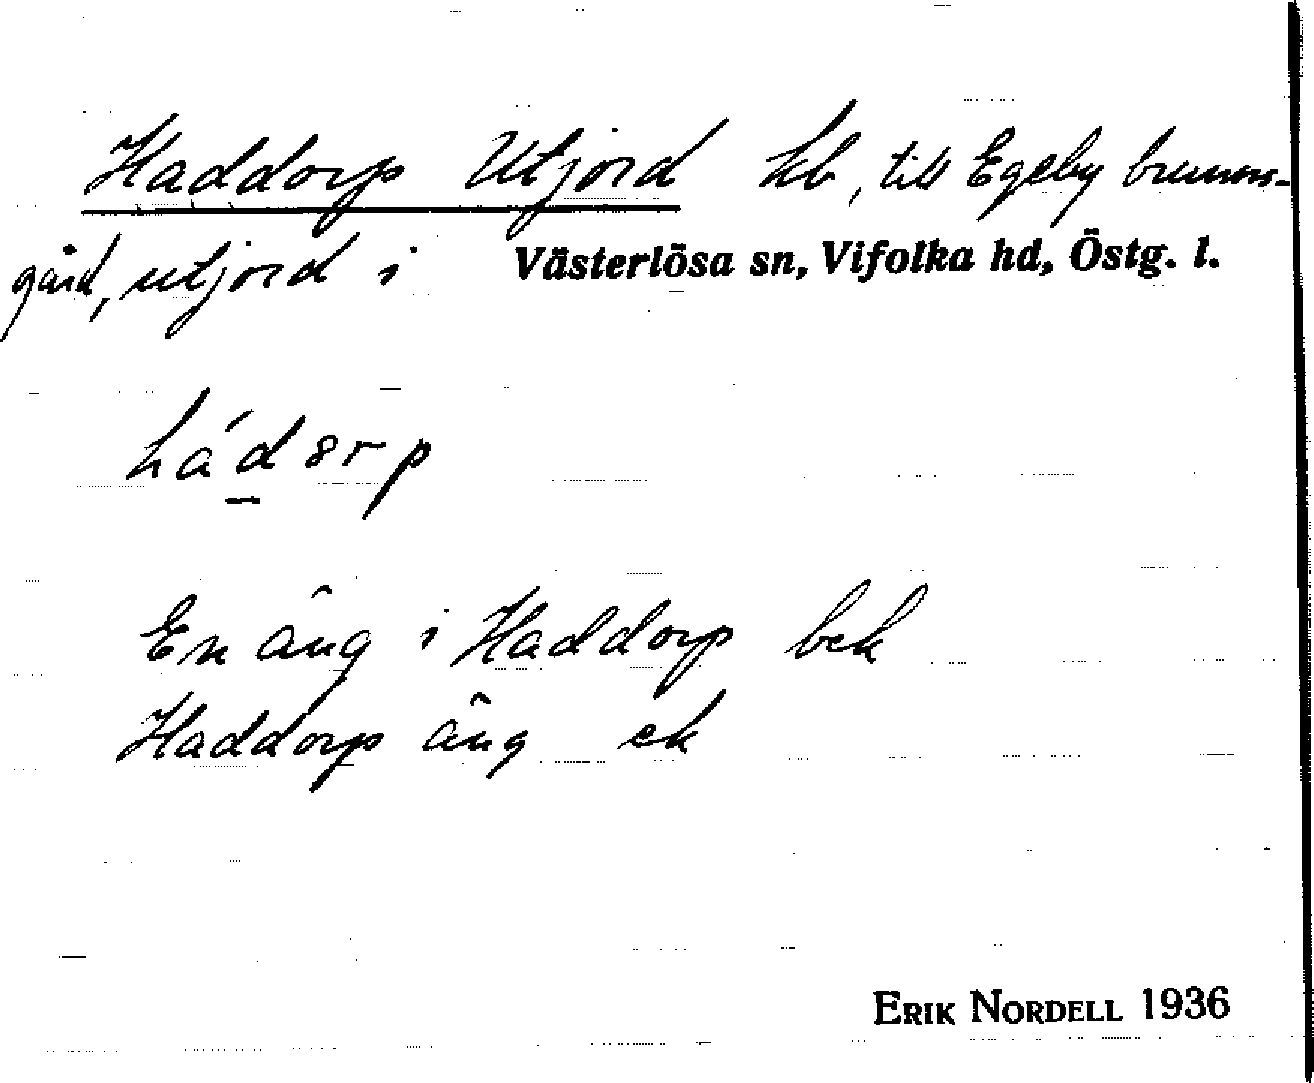 Haddorp Utjord hb, till Egeby brunns-
gård, utjord i Västerlösa sn, Vifolka hd, Östg. l.
hádsrp
En äng i Haddorp bek
Haddorps äng ek
ERIK NORDELL 1936